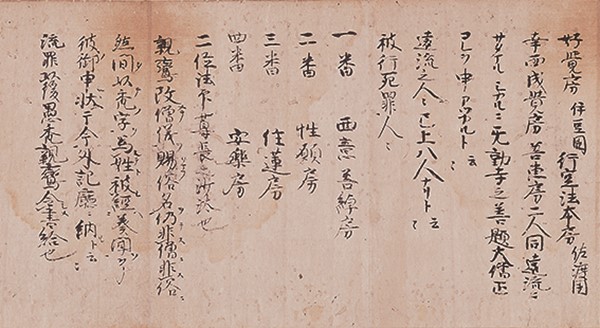 好覚房 伊豆国 行空法本房 佐渡国
幸西成覚房善恵房二人同遠流ニ
サタマル シカルニ無動寺之善題大僧正
コレヲ申アツカルト云々
遠流之人々已上八人ナリト云々
被行死罪人々
一番 西意善綽房
二番 性願房
三番 住蓮房
四番 安樂房
二位法印尊長之沙汰也
親鸞改僧儀賜俗名仍非僧非俗
然間以禿字為姓被經奏聞了
彼御申状于今外記廳納ト云々
流罪以後愚禿親鸞令書給也